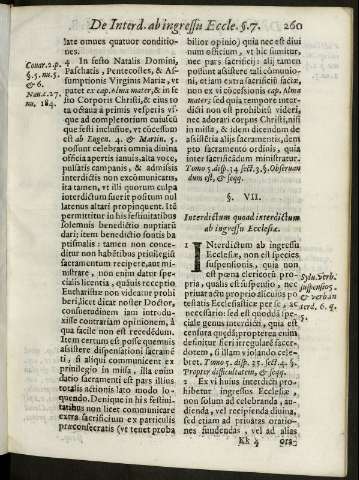 De Interd. ab ingressu Eccle. §. 7. 260
late omnes quatuor conditio-
nes.
4 In festo Natalis Domini,
Paschatis, Pentecostes, & As-
sumptionis Virginis Mariæ, vt
patet ex cap. Alma mater, & in fe-
sto Corporis Christi, & eius to
ta octaua à primis vesperis vs-
que ad completorium cuiusque
que festi inclusiue, vt cōcessum
est ab Eugen. 4. & Martin. 5.
possunt celebrari omnia diuina
officia apertis ianuis, alta voce,
pulsatis campanis, & admissis
interdictis non excommunicatis,
ita tamen, vt illi quorum culpa
interdictum fuerit positum nul
latenus altari propinquent. Itē
permittitur in his festiuitatibus
solemnis benedictio nuptiarū
dari; item benedictio fontis ba
ptismalis: tamen non conce-
ditur non habētibus priuilegiū
sacramentum recipere, aut mi-
nistrare, non enim datur spe-
cialis licentia, quauis receptio
Eucharistiæ non videatur prohi
beri, licet dicat noster Doctor,
consuetudinem iam introdu-
xisse contrariam opinionem, à
qua facile non est recedēdum.
Item certum est posse quemuis
assistere dispensationi sacramē
ti, si aliqui communicent ex
priuilegio in missa, illa enim
latio sacramenti est pars illius
totalis actionis lato modo lo-
quendo. Denique in his festiui-
tatibus non licet communicare
extra sacrificium ex particulis
præconsecratis (vt tenet proba
Couar. 2. p.
§. 5. nu. 5.
& 6.
Nau. c. 27.
nu. 184.
bilior opinio) quia nec est diui-
num officium, vt hic sumitur,
nec pars sacrificij: alij tamen
possunt assistere tali cōmunio-
ni, etiam extra sacrificium, quia
non ex vi cōcessionis cap. Alma
mater, sed ex defectu prohibitio
nis hoc non est vetitū videri,
nec adorari corpus Christi, nisi
in missa, & idem dicendum de
assistētia alijs sacramentis, dem
pto sacramento ordinis, quia
inter sacrificādum ministratur.
Tomo 5. disp. 34. sect. 3. §. Obseruan
dum est, & seqq.
§. VII.
Interdictum quoad interdictum
ab ingressu Ecclesiæ.
1 INterdictum ab ingressu
Ecclesiæ, non est species
suspensionis, quia non
est pœna clericorū pro-
pria, qualis est suspensio, nec
priuat actu proprio alicuius po
testatis Ecclesiasticæ per se, ac
necessario: sed est quoddā spe-
ciale genus interdicti, quia est
censura quędā propterea enim
definitur fieri irregulare sacer
dotem, si illam violando cele-
bret. Tomo 5. disp. 35. sect. 4. §.
Propter difficultatem, & seqq.
2 Ex vi huius interdicti pro-
hibetur ingressus Ecclesiæ,
non solum ad celebranda, au-
dienda, vel recipienda diuina,
sed etiam ad priuatas oratio-
nes fundendas, vel ad alias
Sylu. verb.
suspensio 5.
& verb. in
terd. 6. q.
5.
Kk 4 ora-